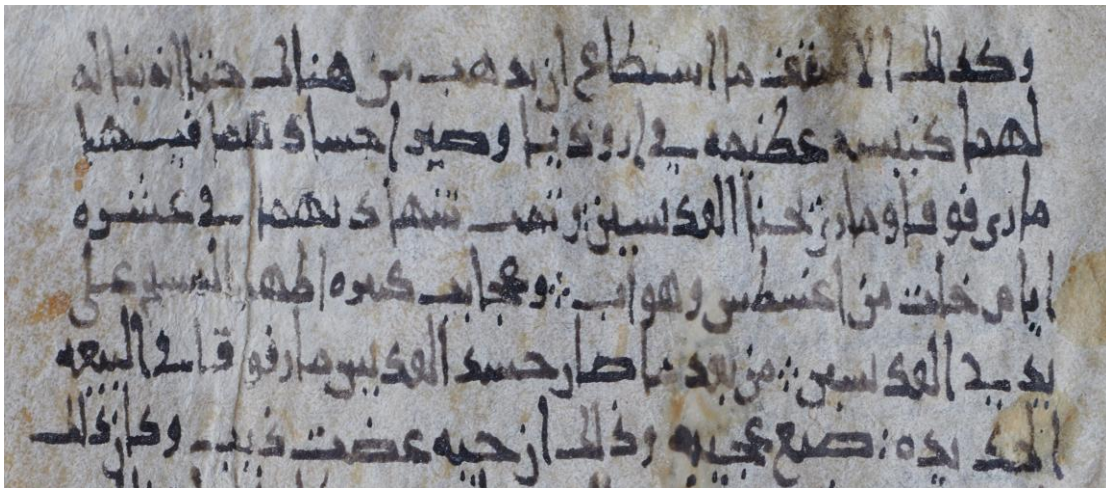 وكذلك الاسقف ما استطاع ان يذهب من هناك حتا انه بنا له
لهما كنيسه عظيمه في اروندیا وصير اجسادهما فيها
ماري قوقا ومار يحنا القديسين وتمت شهادتهما في عشره
ايام خلت من اغسطس وهو اب ⁘ وعجايب كثيره اظهر المسيح على
يدي القديسين ⁘ من بعد ما صار جسد القديس مار قوقا في البيعه
الجديده ⁘ صنع عجيبه وذلك ان حيه عضت ذيب وكان ذلك